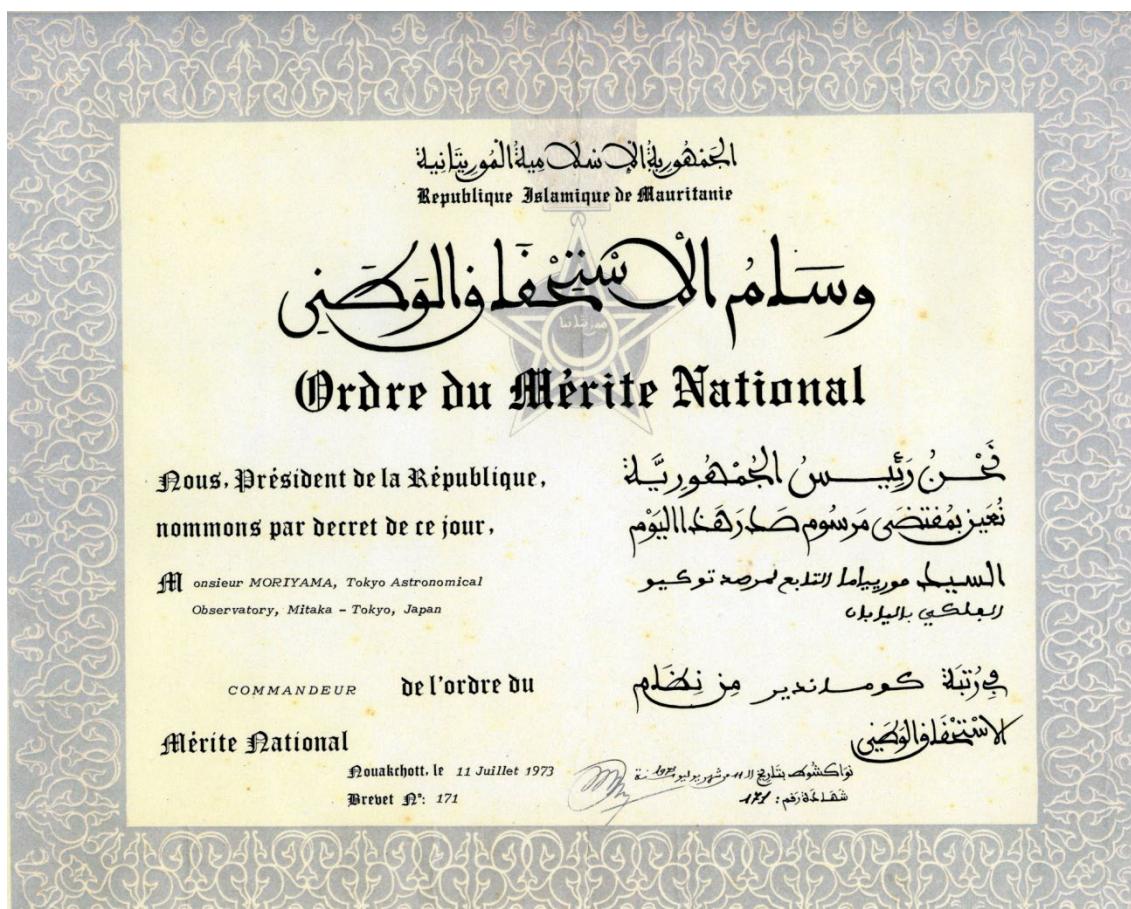 الجمهورية الإسلامية الموريتانية
Republique Islamique de Mauritanie
وسام الاستحقاق الوطني
موريتانيا
Ordre du Mérite National
Nous, Président de la République,
nommons par decret de ce jour,
Monsieur MORIYAMA, Tokyo Astronomical
Observatory, Mitaka - Tokyo, Japan
COMMANDEUR de l'ordre du
Mérite National
Nouakchott, le 11 Juillet 1973
Brevet Nº: 171
نَحْنُ رَئِيسُ الجُمْهُورِيَّة
نُعَيِّنُ بِمُقْتَضَى مَرْسُوم صَدَرَ هَذَا اليَوْم
السيد مورياما التابع لمرصد توكيو
الفلكي باليابان
في رُتْبَة كومانдير مِن نِظَام
الاسْتِحْقَاق الوَطَنِي
نواكشوط بتاريخ الـ 11 من شهر يوليو سنة 1973
شهادة رقم: 171